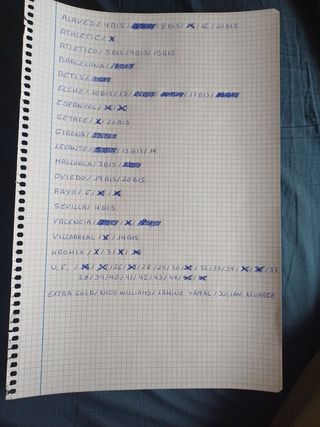 ALAVES / 4 BIS / / 8 BIS / X / 16 / 20 BIS
ATHLETIC / X
ATLETICO / 5 BIS / 9 BIS / 15 BIS
BARCELONA /
BETIS /
ELCHE / 10 BIS / 13 / / / 17 BIS /
ESPANYOL / X / X
GETAFE / X / 20 BIS
GIRONA /
LEVANTE / / 13 BIS / 14
MALLORCA / 3 BIS /
OVIEDO / 19 BIS / 20 BIS
RAYO / 6 / X / X
SEVILLA / 4 BIS
VALENCIA / / X /
VILLARREAL / X / 14 BIS
KROMIX / X / 3 / X / X
U.F. / X / X / 26 / X / 28 / 29 / 30 / X / 32 / 33 / 34 / X / X / 37
38 / 39 / 40 / 41 / 42 / 43 / 44 / X / X
EXTRA GOLD / NICO WILLIAMS / LAMINE YAMAL / JULIAN ALVAREZ